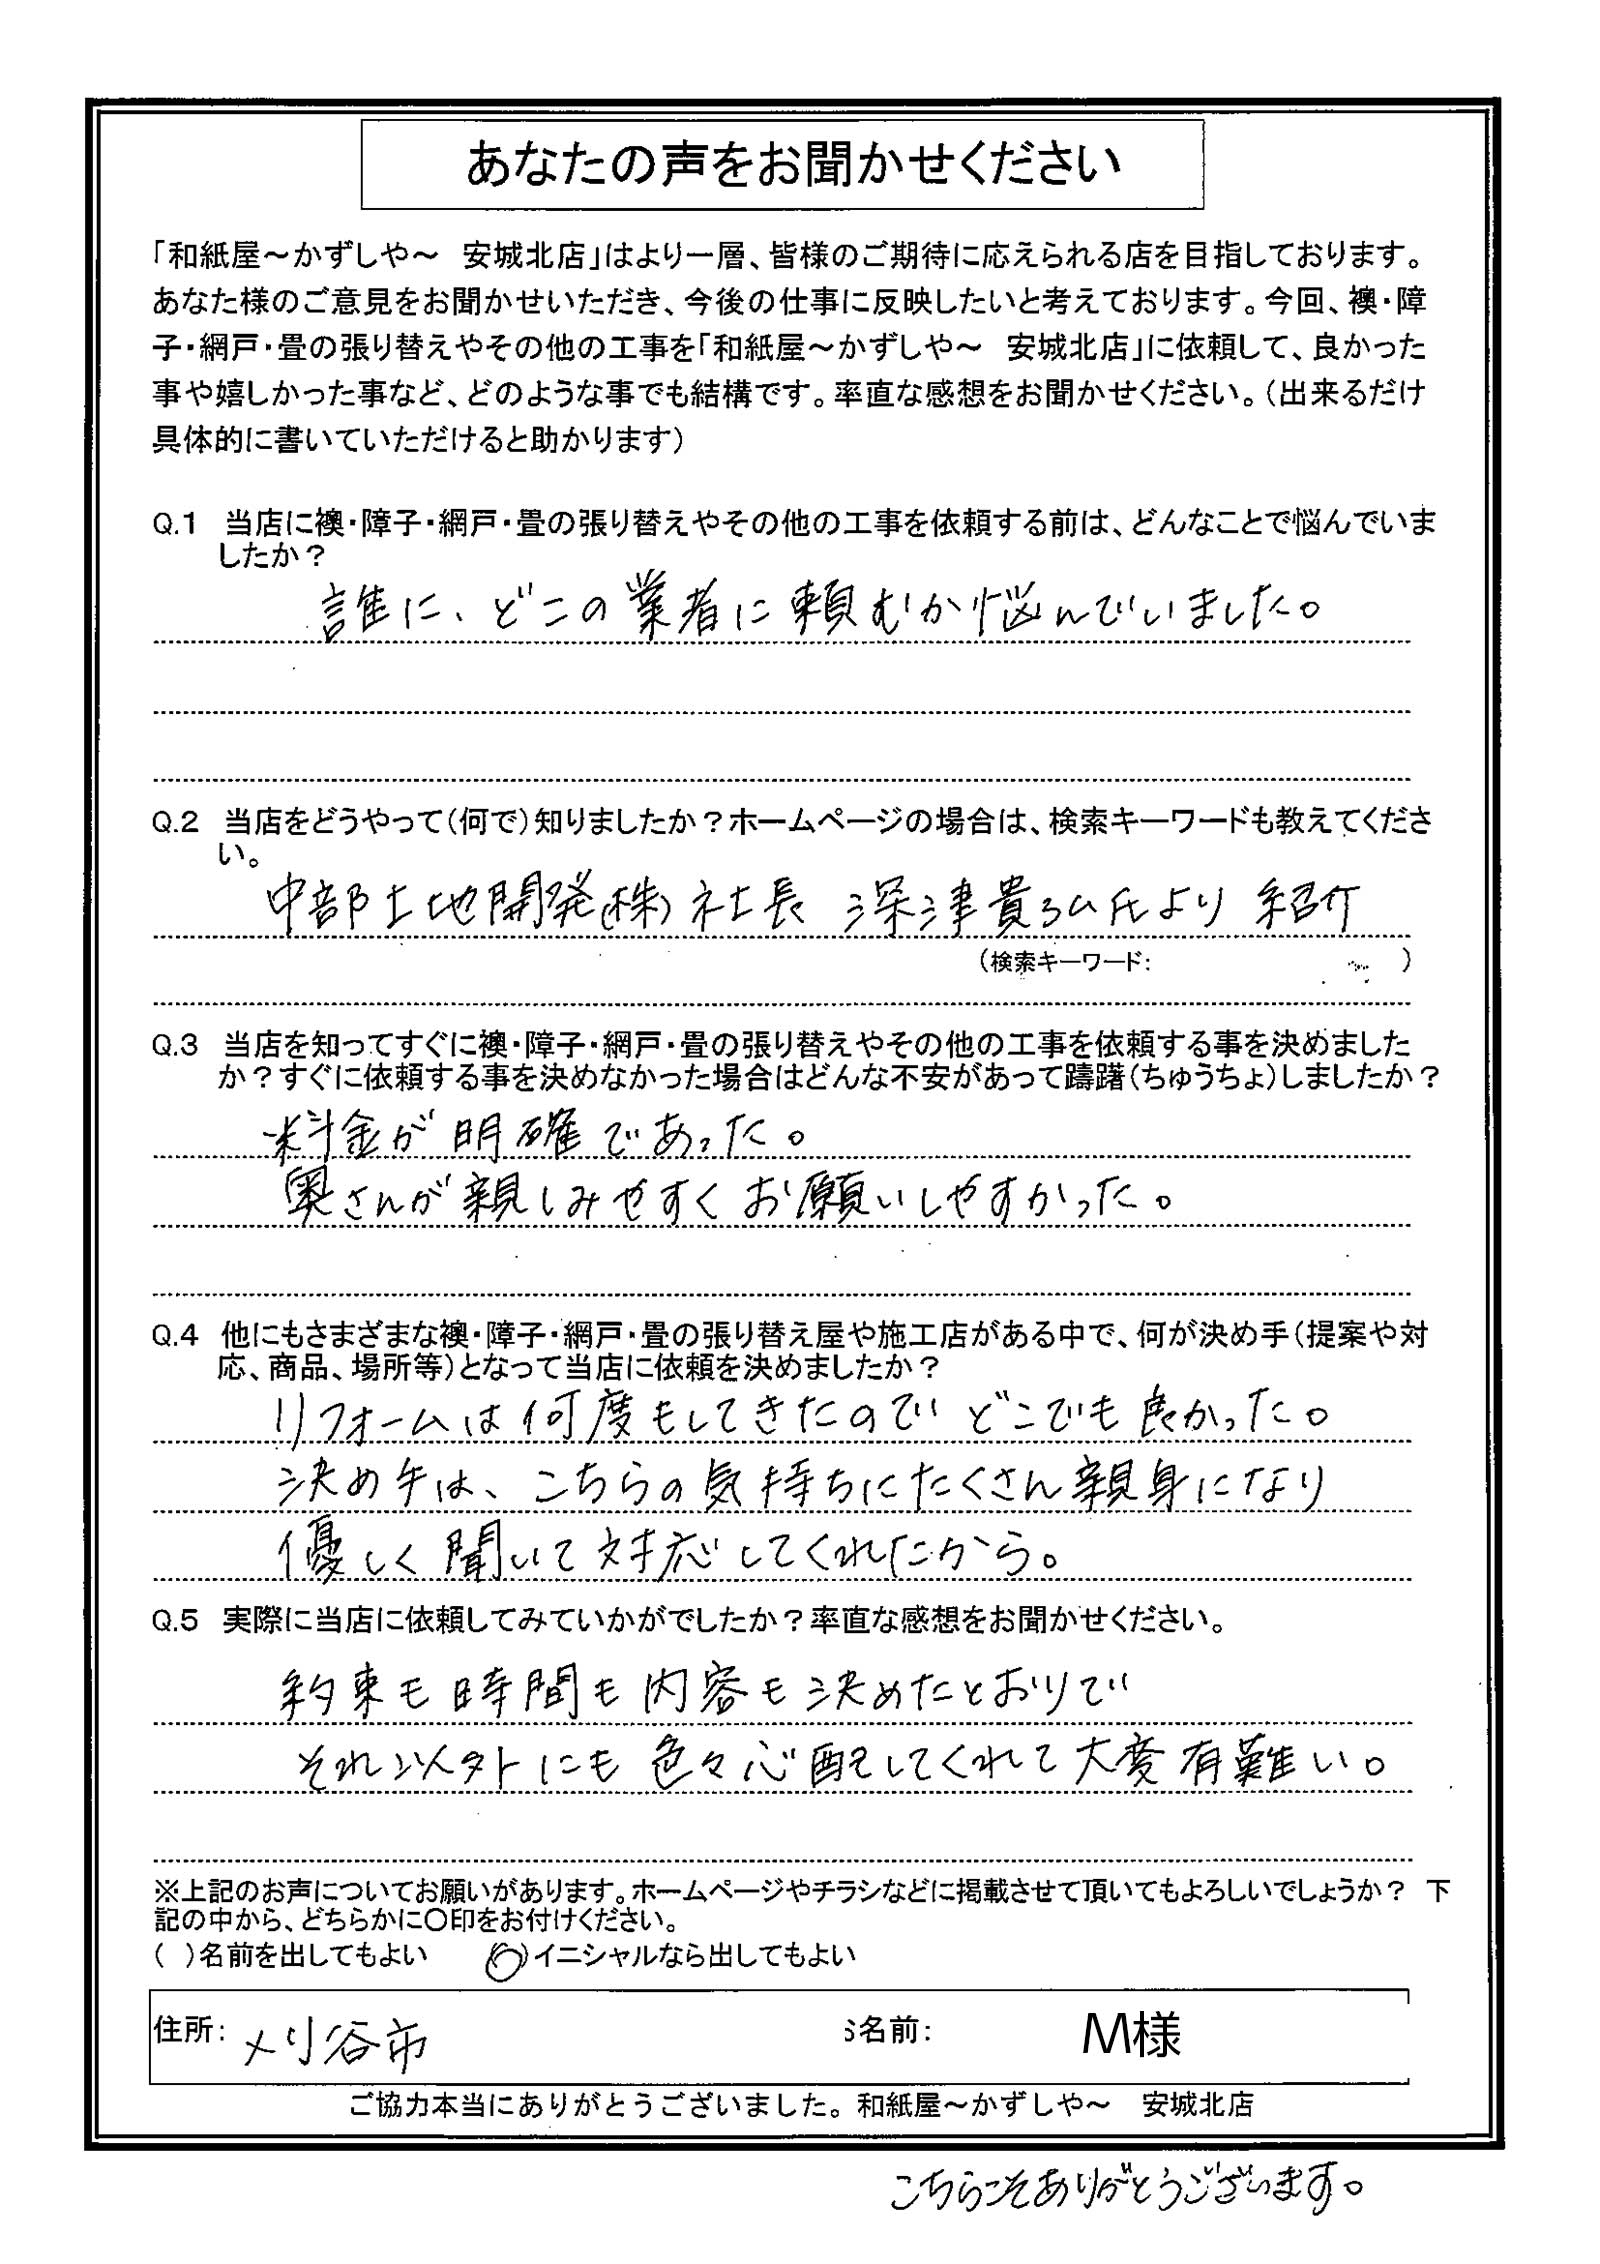 あなたの声をお聞かせください
「和紙屋～かずしや～　安城北店」はより一層、皆様のご期待に応えられる店を目指しております。
あなた様のご意見をお聞かせいただき、今後の仕事に反映したいと考えております。今回、襖・障
子・網戸・畳の張り替えやその他の工事を「和紙屋～かずしや～　安城北店」に依頼して、良かった
事や嬉しかった事など、どのような事でも結構です。率直な感想をお聞かせください。（出来るだけ
具体的に書いていただけると助かります）
Q.1　当店に襖・障子・網戸・畳の張り替えやその他の工事を依頼する前は、どんなことで悩んでいま
したか？
誰に、どこの業者に頼むか悩んでいました。
Q.2　当店をどうやって（何で）知りましたか？ホームページの場合は、検索キーワードも教えてくださ
い。
中部土地開発(株)社長 深津貴弘氏より 紹介
（検索キーワード：　）
Q.3　当店を知ってすぐに襖・障子・網戸・畳の張り替えやその他の工事を依頼する事を決めました
か？すぐに依頼する事を決めなかった場合はどんな不安があって躊躇（ちゅうちょ）しましたか？
料金が明確であった。
奥さんが親しみやすくお願いしやすかった。
Q.4　他にもさまざまな襖・障子・網戸・畳の張り替え屋や施工店がある中で、何が決め手（提案や対
応、商品、場所等）となって当店に依頼を決めましたか？
リフォームは何度もしてきたのでどこでも良かった。
決め手は、こちらの気持ちにたくさん親身になり
優しく聞いて対応してくれたから。
Q.5　実際に当店に依頼してみていかがでしたか？率直な感想をお聞かせください。
約束も時間も内容も決めたとおりで
それ以外にも色々心配してくれて大変有難い。
※上記のお声についてお願いがあります。ホームページやチラシなどに掲載させて頂いてもよろしいでしょうか？　下
記の中から、どちらかに〇印をお付けください。
（ ）名前を出してもよい　（〇）イニシャルなら出してもよい
住所：刈谷市　名前：　M様
ご協力本当にありがとうございました。和紙屋～かずしや～　安城北店
こちらこそありがとうございます。